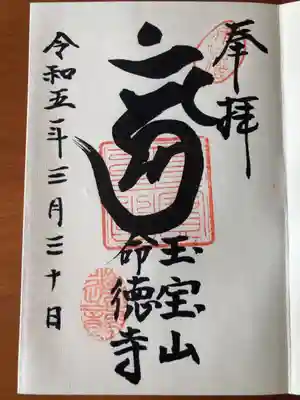 奉拝
玉宝山
命徳寺
令和五年三月三十日